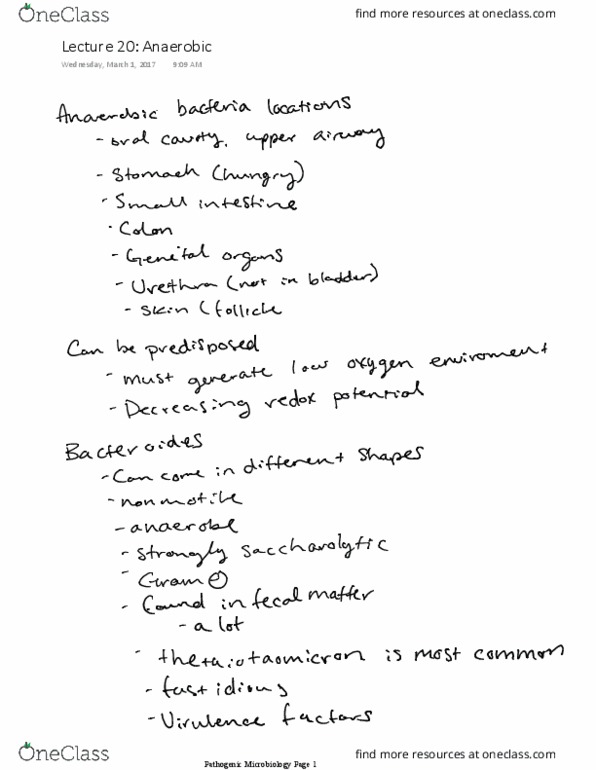 OneClass
find more resources at oneclass.com
Lecture 20: Anaerobic
Wednesday, March 1, 2017 9:09 AM
Anaerobic bacteria locations
- oral cavity, upper airway
- Stomach (hungry)
- Small intestine
- Colon
- Genital organs
- Urethra (not in bladder)
- Skin (follicle
Can be predisposed
- must generate low oxygen enviroment
- Decreasing redox potential
Bacteroides
- Can come in different shapes
- nonmotile
- anaerobe
- strongly saccharolytic
- Gram ⊖
- found in fecal matter
- a lot
- thetaiotaomicron is most common
- fastidious
- Virulence factors
OneClass
Pathogenic Microbiology Page 1
find more resources at oneclass.com